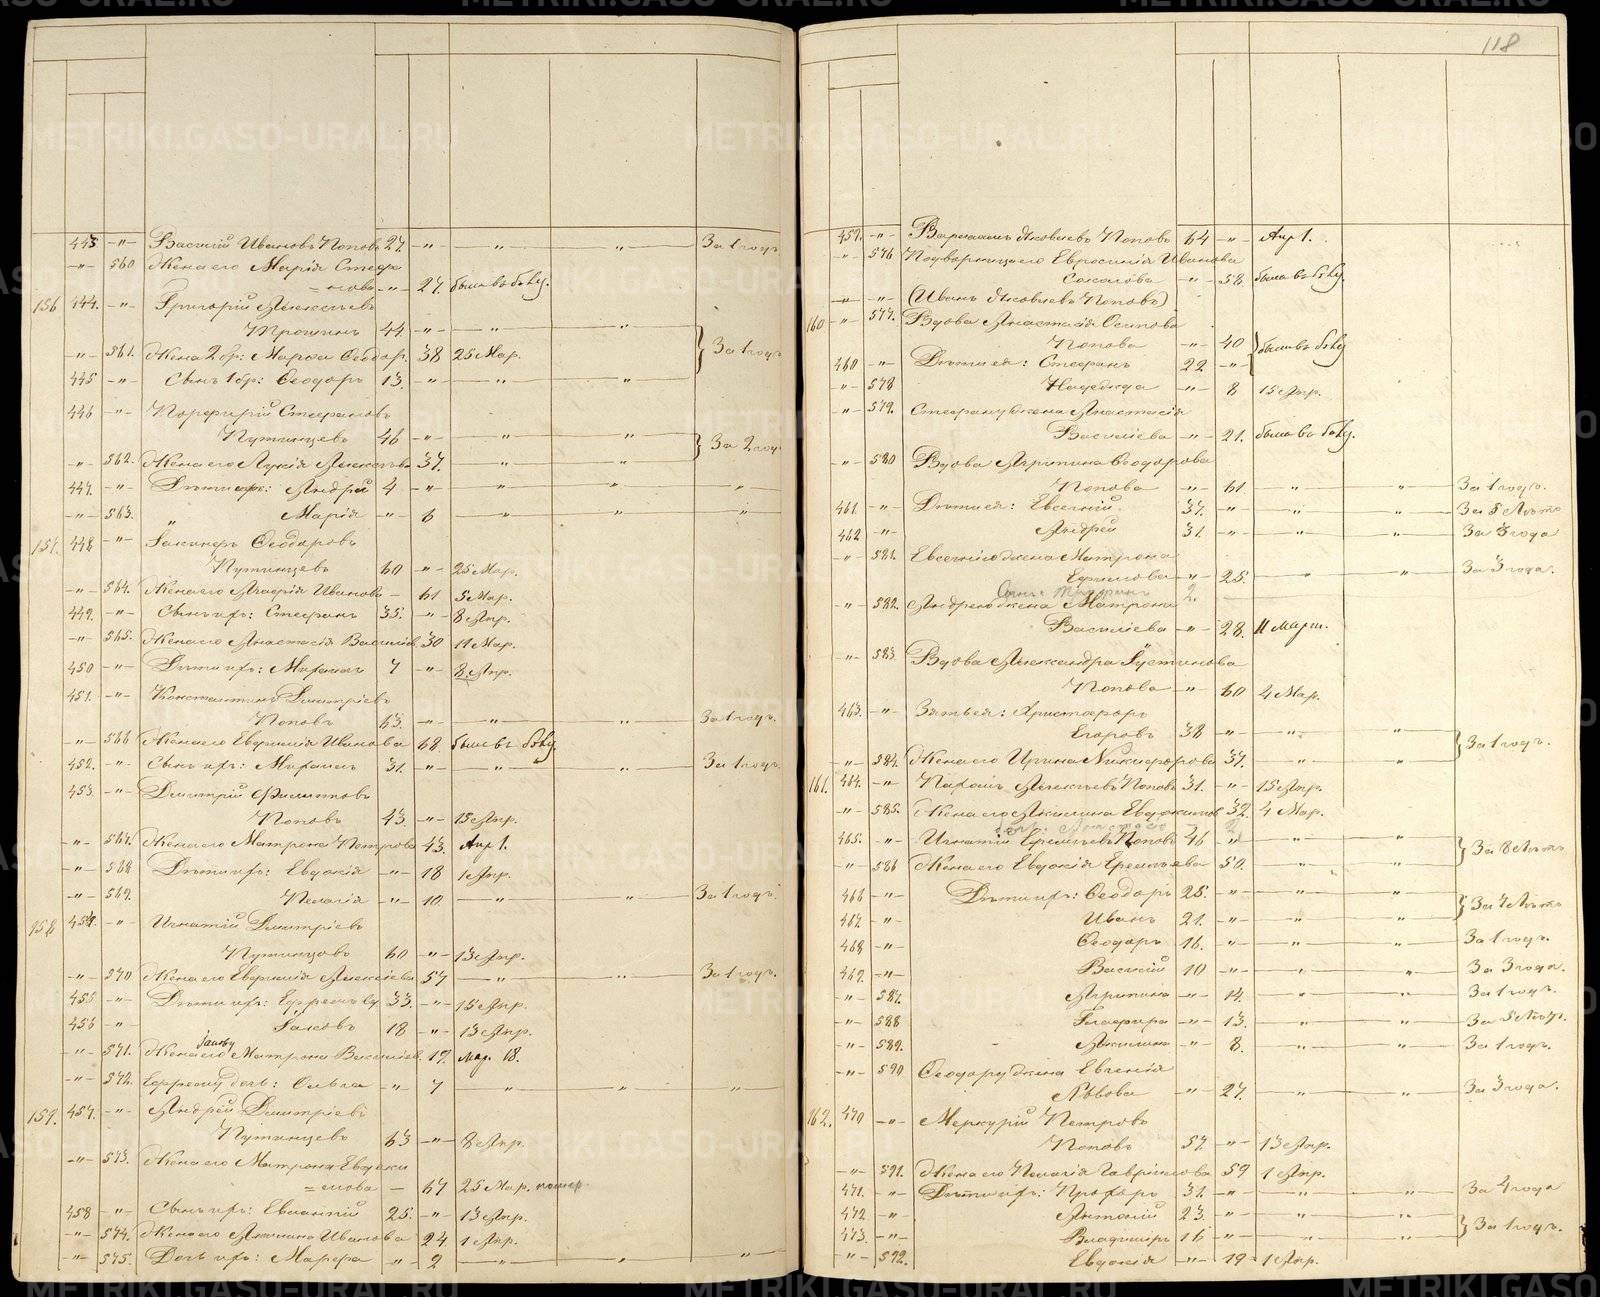 443. -"- Василій Ивановъ Поповъ 27. -"- " " За 1 годъ
-"- 560 Жена его Марія Стефа
=нова -"- 27. была въ б
156 444. -"- Григорій Алексѣевъ
Трошинъ 44 -"- " "
-"- 561. Жена 2 бр: Марѳа Ѳеодор. 38 25 Мар. } За 1 годъ
445 -"- Сынъ 1 бр: Ѳеодоръ 13. -"- " "
446 -"- Порфирій Стефановъ
Путинцевъ 46 -"- " "
} За 2 года
-"- 562. Жена его Лукія Алексѣева 37. " "
447. -"- Дѣти ихъ: Андрей 4 -"- " "
-"- 563. Марія -"- 6 " "
157. 448 -"- Ѳеодоровъ
Путинцевъ 60 -"- 25 Мар.
-"- 564. Жена его Марія Иванова - 61 5 Мар.
449. -"- Сынъ ихъ: Стефанъ 35. -"- 8 Апр.
-"- 565. Жена его Анастасія Василіев. 30 11 Мар.
450 -"- Дѣти ихъ: Михаилъ 7 -"- 8 Апр.
451. -"- Константинъ Димитріевъ
Поповъ 63. -"- " " За 1 годъ.
-"- 566 Жена его Евфимія Иванова 68. была въ б
452. -"- Сынъ ихъ: Михаилъ 31. -"- " " За 1 годъ.
453. -"- Димитрій Филипповъ
Поповъ 43. -"- 15 Апр.
-"- 567. Жена его Матрона Петрова 43. Апр 1.
-"- 568 Дѣти ихъ: Евдокія -"- 18 1 Апр.
-"- 569. Пелагія -"- 10. " " За 1 годъ
158 454. -"- Игнатій Димитріевъ
Путинцовъ 60 -"- 13 Апр.
-"- 570 Жена его Евфимія Алексѣева 57 -"- " " За 1 годъ.
455 -"- Дѣти ихъ: Ефремъ 33. -"- 15 Апр.
456 -"- Іаковъ 18 -"- 13 Апр.
Іакову
-"- 571. Жена его Матрона Василіев. 19. Мар. 18.
-"- 572. Ефрему дочь: Ольга -"- 7 " " "
159. 457. -"- Андрей Димитріевъ
Путинцевъ 63 -"- 8 Апр.
-"- 573. Жена его Матрона Евдоки
=мова - 67 25 Мар.
458 -"- Сынъ ихъ: Евлампій 25. -"- 13 Апр.
-"- 574. Жена его Акилина Иванова 24. 1 Апр.
-"- 575. Дочь ихъ: Марѳа -"- 2 " " "
118
459. -"- Варлаамъ Яковлевъ Поповъ 64 -"- Апр 1.
-"- 576 Подворница его Евфросинія Иванова
Соколова -"- 58. была въ б
-"- -"- (Иванъ Яковлевъ Поповъ)
160 -"- 577. Вдова Анастасія Осипова
Попова -"- 40
} были въ б
460 -"- Дѣти ея: Стефанъ 22 -"-
-"- 578 Надежда -"- 8 15 Апр.
-"- 579. Стефану жена Анастасія
Василіева -"- 21. была въ б
-"- 580 Вдова Агрипина Ѳеодорова
Попова -"- 61 " " За 1 годъ.
461. -"- Дѣти ея: Евгеній 37. -"- " " За 5 лѣтъ
462 -"- Андрей 31. -"- " " За 3 года
-"- 581. Евгенію жена Матрона
Ефимова -"- 25. " " За 3 года.
2.
-"- 582. Андрею жена Матрона
Василіева -"- 28. 11 Март.
-"- 583 Вдова Александра Іустинова
Попова -"- 60 4 Мар.
463. -"- Зять ея: Христофоръ
Егоровъ 38 -"- " "
} За 1 годъ.
-"- 584. Жена его Ирина Никифорова 37. " "
161. 464. -"- Алексѣевъ Поповъ 31. -"- 15 Апр.
-"- 585. Жена его Акилина Евдокимов. 32. 4 Мар.
465. -"- Игнатій Еремѣевъ Поповъ 46 -"- " "
} За 8 лѣтъ
-"- 586 Жена его Евдокія Еремѣева 50. " "
466 -"- Дѣти ихъ: Ѳеодоръ 25. -"- " "
} За 7 лѣтъ
467. -"- Иванъ 21. -"- " "
468 -"- Ѳеодоръ 16. -"- " " За 1 годъ.
469. -"- Василій 10 -"- " " За 3 года.
-"- 587. Агрипина -"- 14. " " За 1 годъ.
-"- 588 Глафира -"- 13. " " За 5 лѣтъ.
-"- 589. Акилина -"- 8. " " За 1 годъ.
-"- 590 Ѳеодору жена Евгенія
Львова -"- 27. " " За 3 года.
162. 470 -"- Меркурій Петровъ
Поповъ 57. -"- 13 Апр.
-"- 591. Жена его Пелагія Гавріилова 59 1 Апр.
471. -"- Дѣти ихъ: Прохоръ 31. -"- " " За 4 года
472 -"- Антоній 23. -"- " "
} За 1 годъ.
473. -"- Владиміръ 16 -"- " "
-"- 592. Евдокія -"- 19 1 Апр.